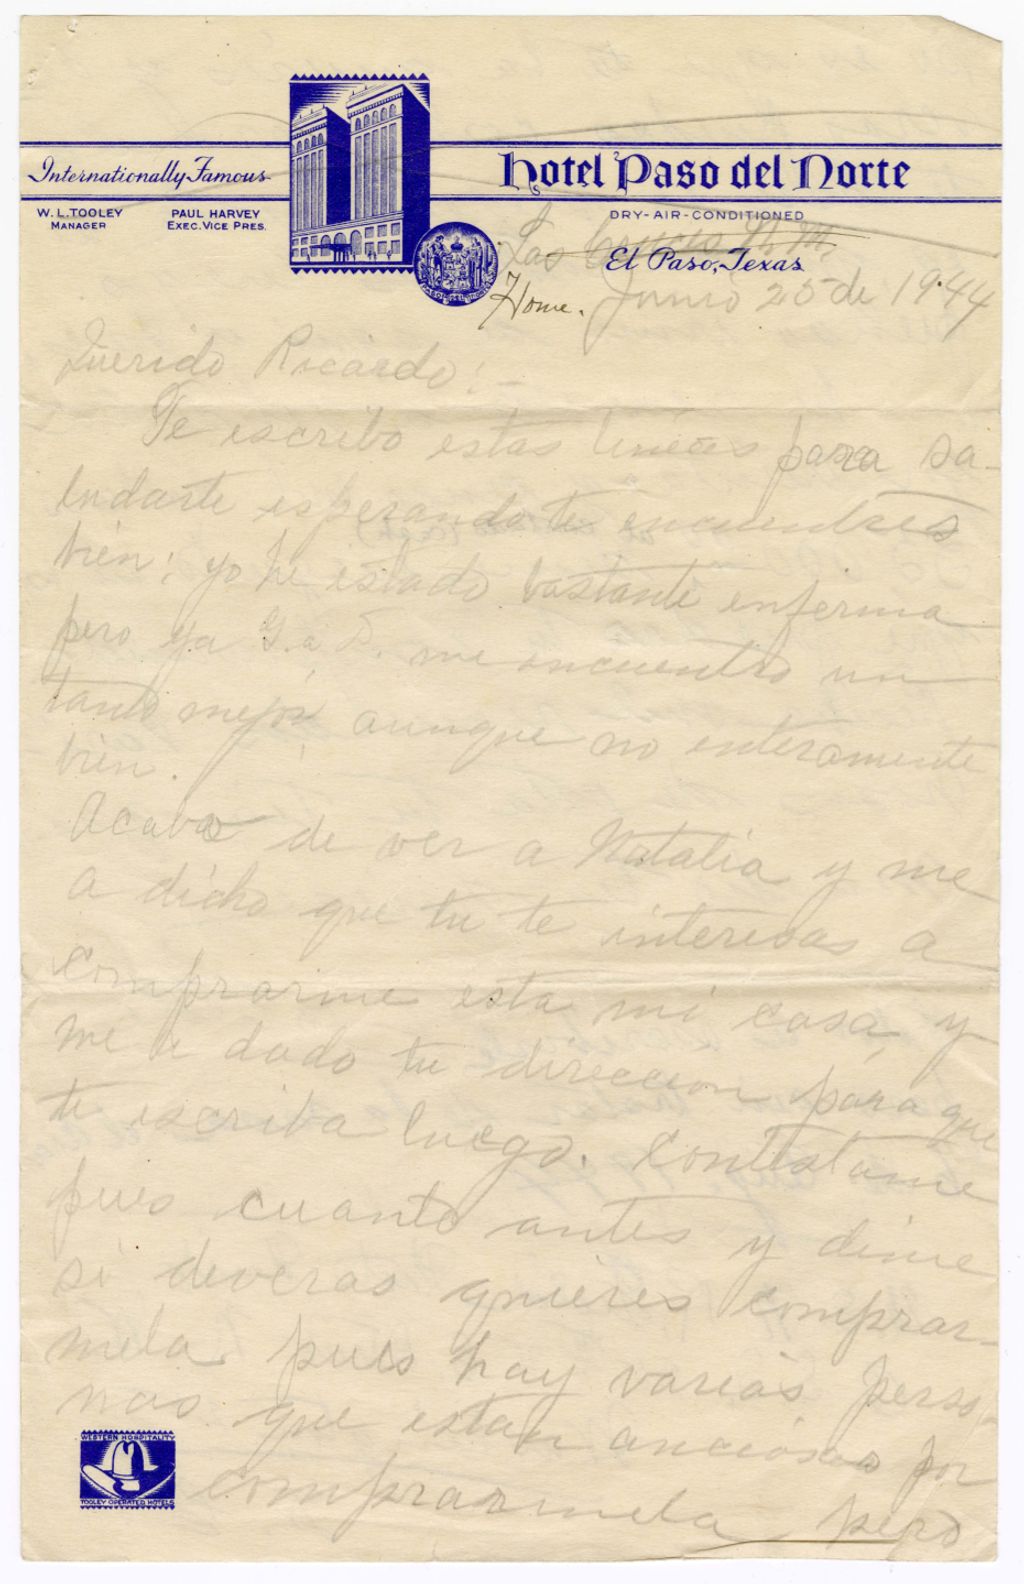 Internationally Famous
Hotel Paso del Norte
W. L. TOOLEY
MANAGER
PAUL HARVEY
EXEC. VICE PRES.
DRY-AIR-CONDITIONED
El Paso, Texas
Las Cruces N. M.
Home. Junio 25 de 1944
Querido Ricardo:-
Te escribo estas lineas para sa-
ludarte esperando te encuentres
bien; yo he estado bastante enferma
pero ya G. a D. me encuentro un
tanto mejor aunque no enteramente
bien.
Acabo de ver a Natalia y me
a dicho que tu te interesas a
comprarme esta mi casa y
me a dado tu dirección para que
te escriba luego. Contestame
pues cuanto antes y dime
si deveras quieres comprar-
mela pues hay varias perso-
nas que estan anciosas por
comprarmela, pero
WESTERN HOSPITALITY
TOOLEY OPERATED HOTELS